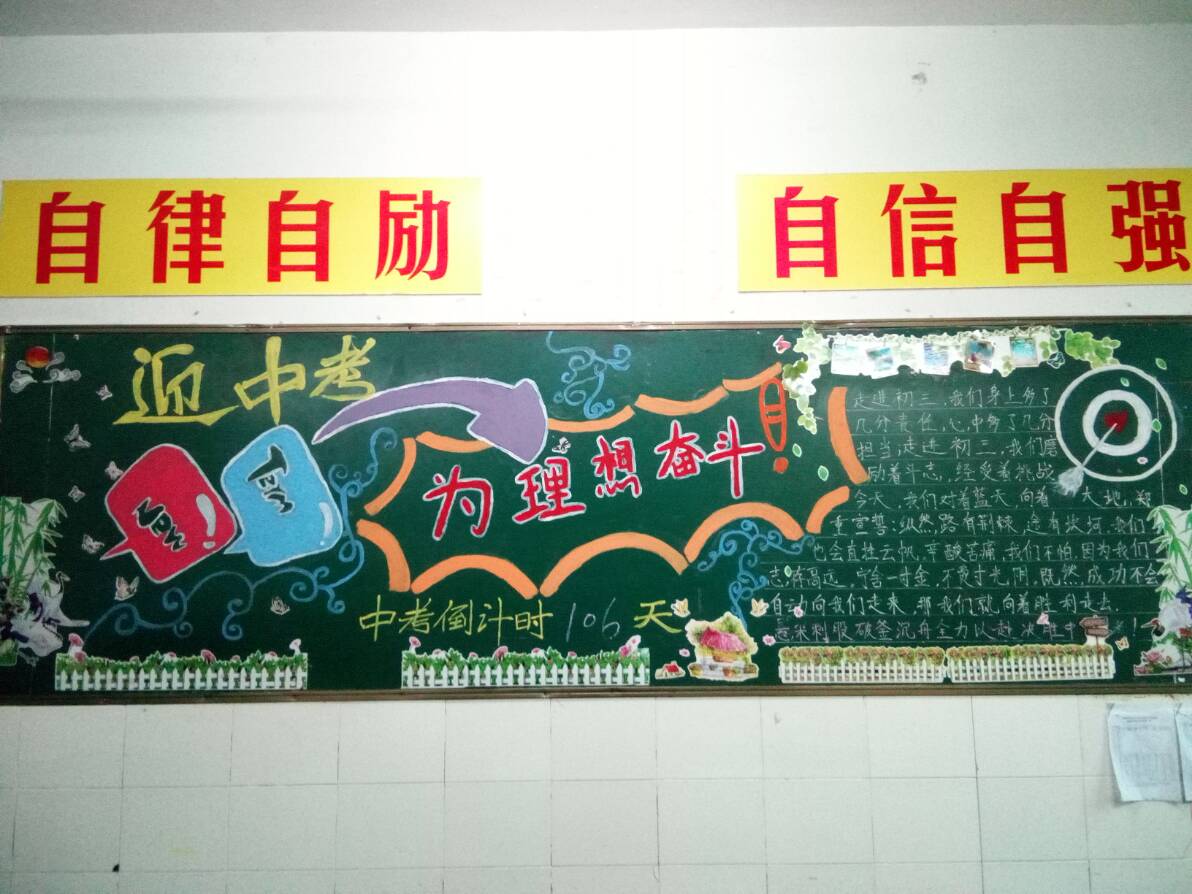 自律自励
自信自强
迎中考
为理想奋斗!
中考倒计时106天
走进初三,我们身上多了
几分责任,心中多了几分
担当,走进初三,我们磨
励着斗志,经受着挑战
今天,我们对着蓝天 向着 大地,郑
重宣誓:纵然路有荆棘 途有坎坷,我们
也会直挂云帆,辛酸苦痛,我们不怕,因为我们
志存高远,宁舍一寸金,不失寸光阴,既然,成功不会
自动向我们走来,那我们就向着胜利走去.
最柒刺服破釜沉舟全力以赴决胜中